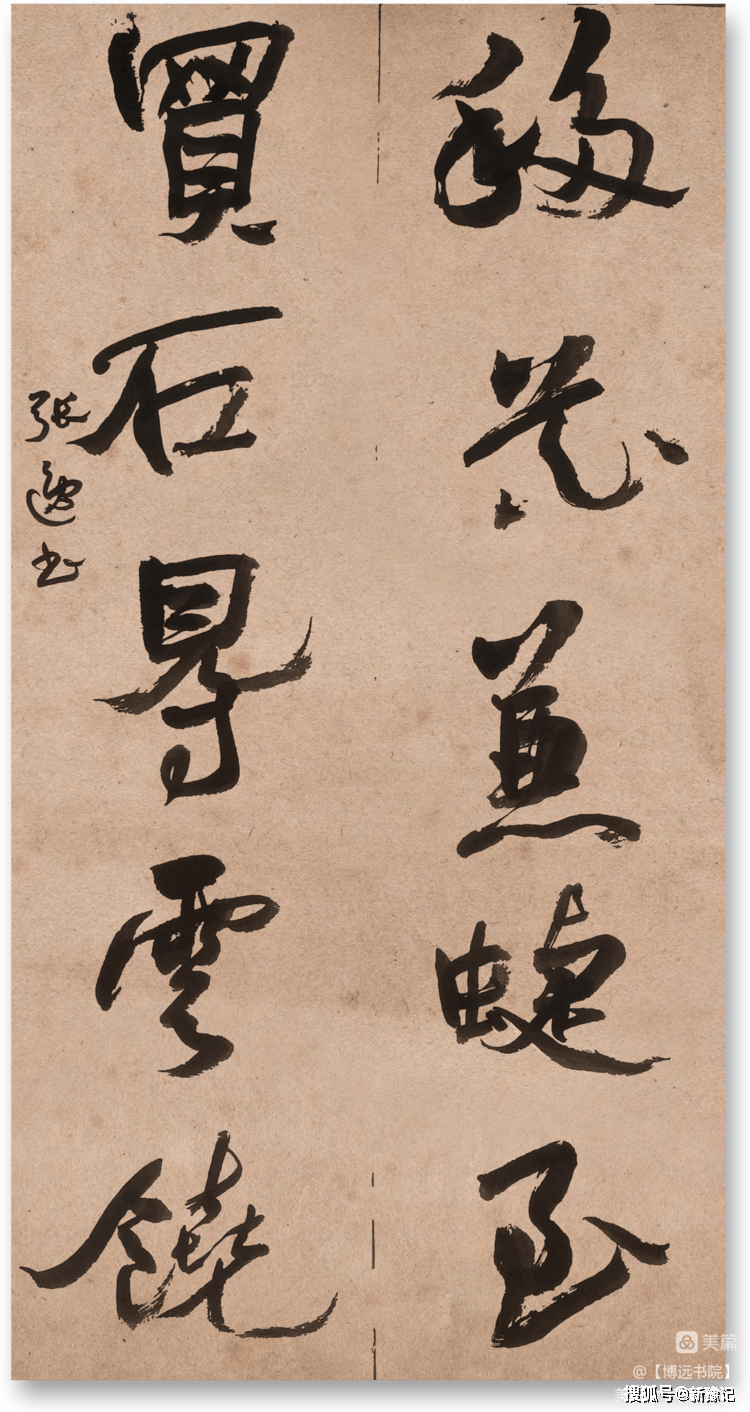 移花兼蜨至
買石得雲饒
張逸书
美篇
@【博远书院】
搜狐号@新豫记